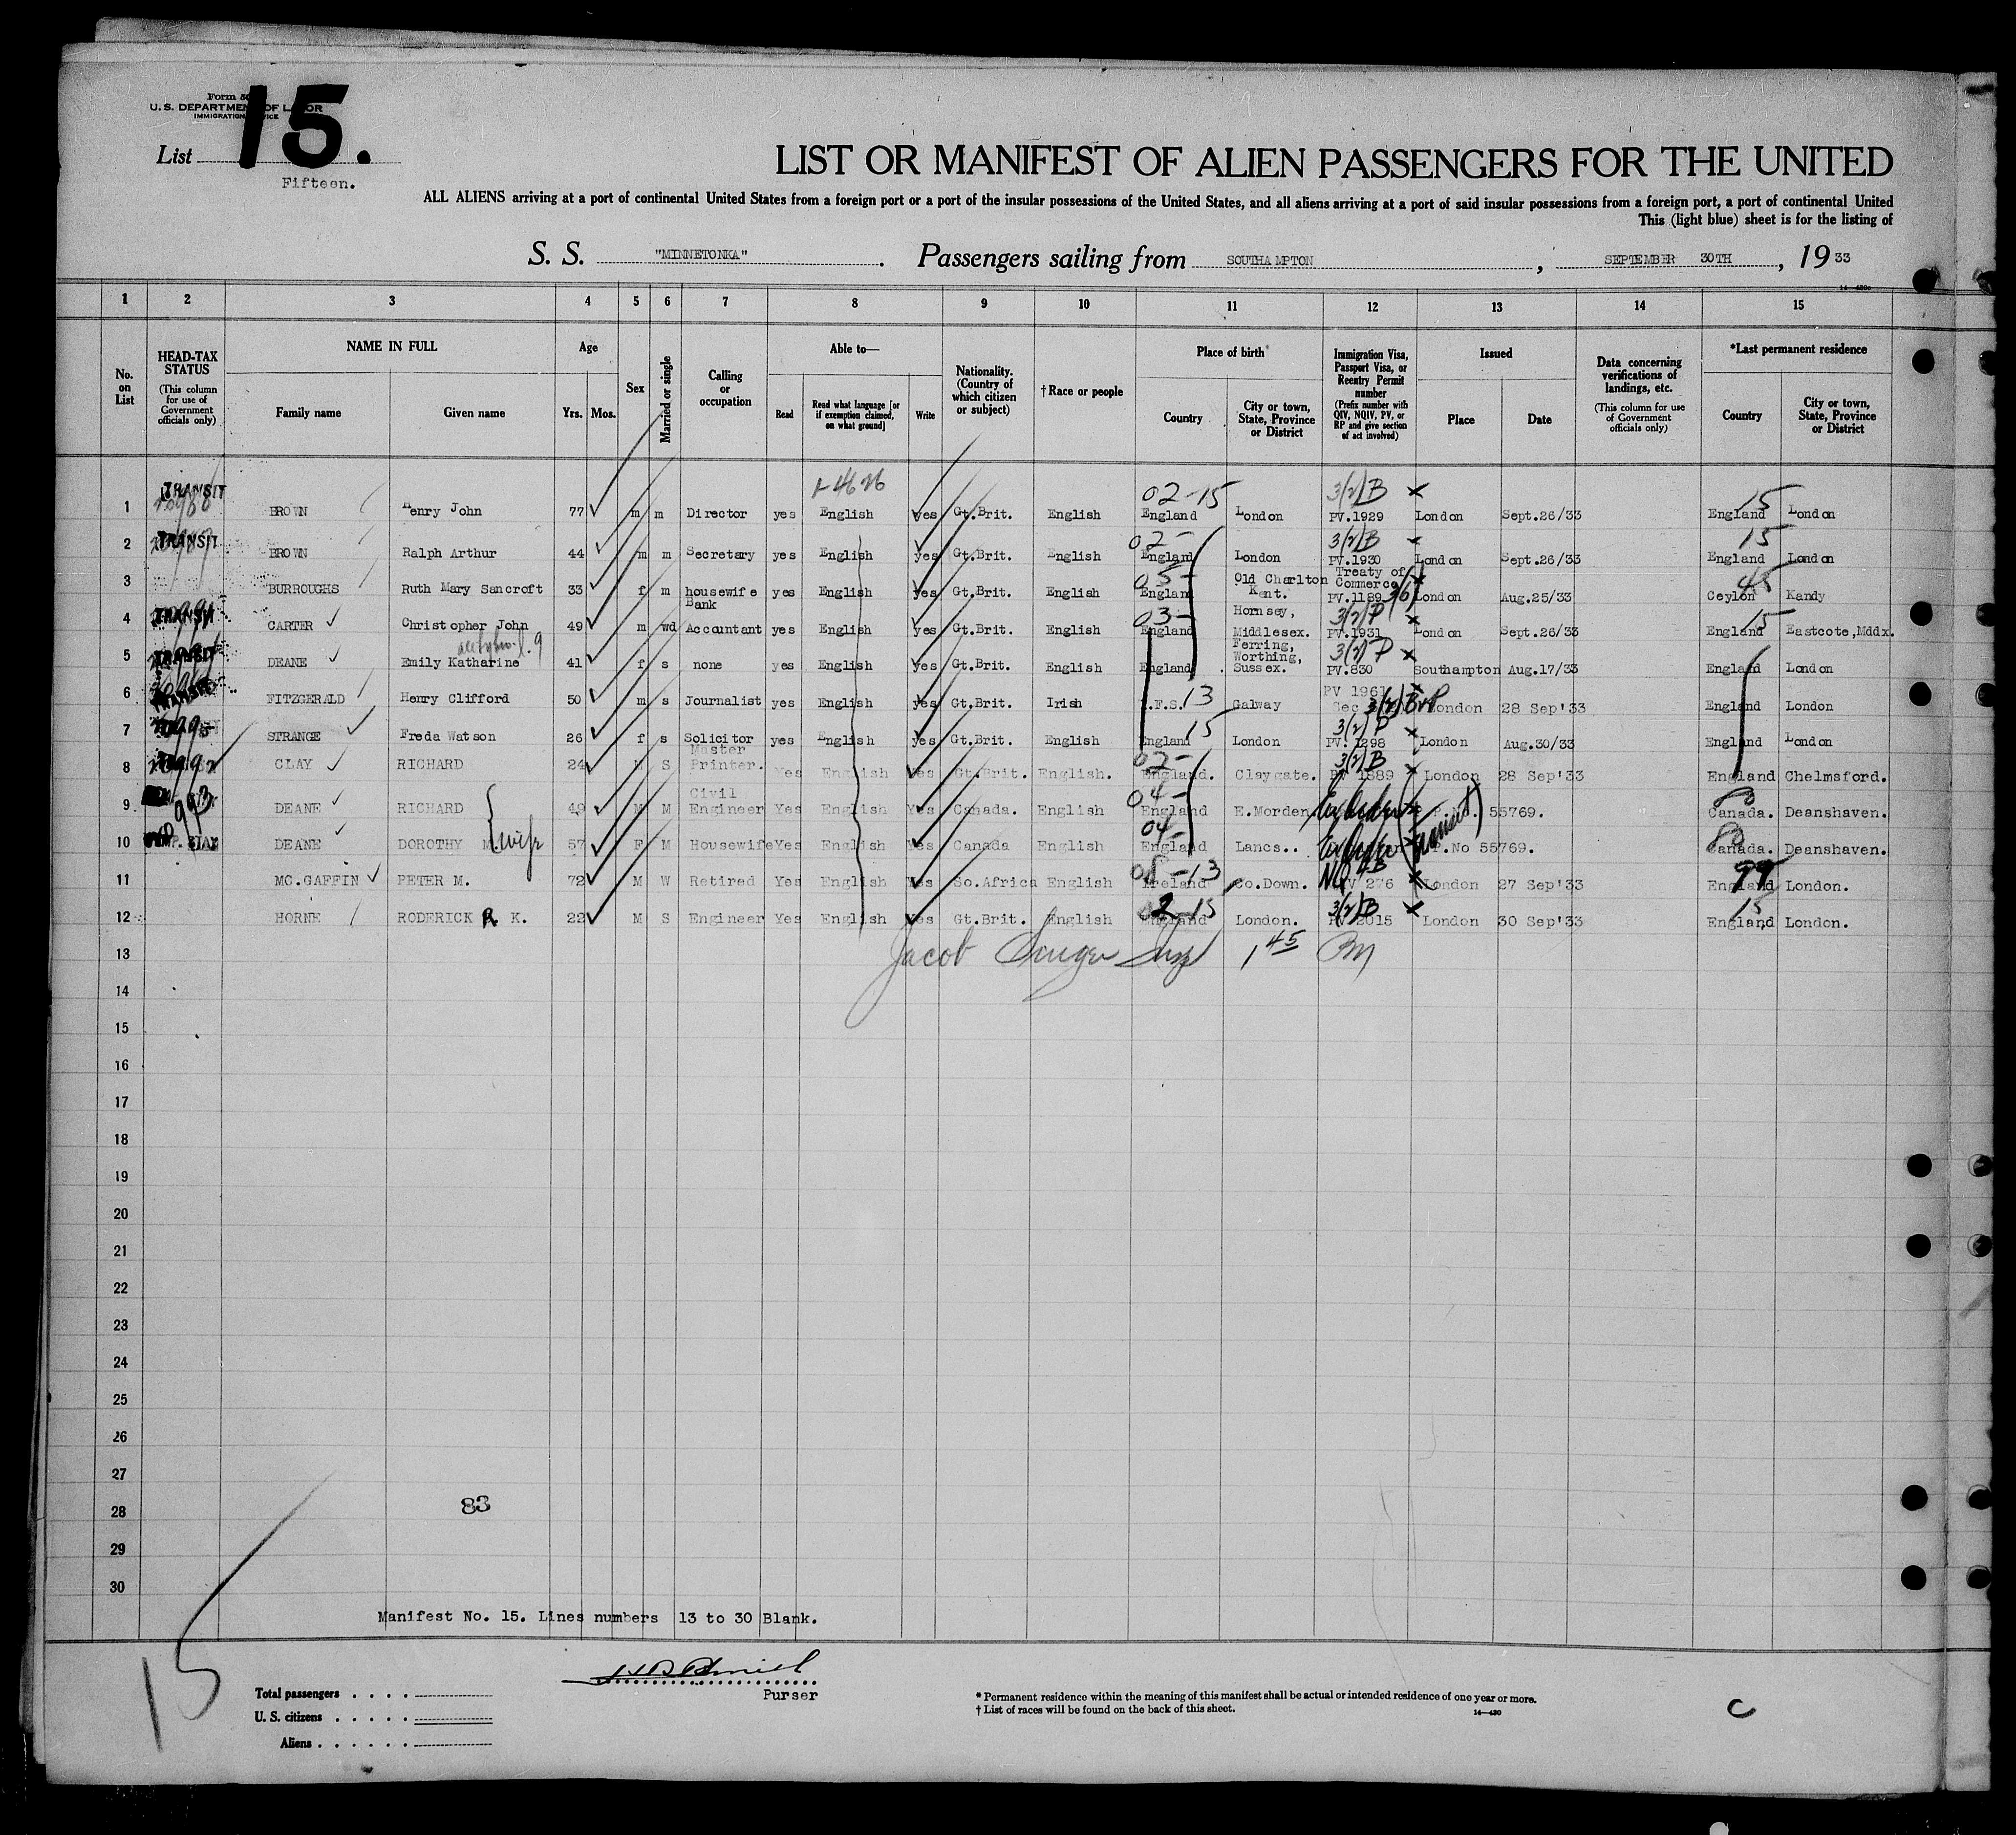 Form 50
U. S. DEPARTMENT OF LABOR
IMMIGRATION SERVICE
List 15.
Fifteen.
LIST OR MANIFEST OF ALIEN PASSENGERS FOR THE UNITED
ALL ALIENS arriving at a port of continental United States from a foreign port or a port of the insular possessions of the United States, and all aliens arriving at a port of said insular possessions from a foreign port, a port of continental United
This (light blue) sheet is for the listing of
S. S. "MINNETONKA". Passengers sailing from SOUTHAMPTON, SEPTEMBER 30TH, 1933
1 2 3 4 5 6 7 8 9 10 11 12 13 14 15
No. on List
HEAD-TAX STATUS (This column for use of Government officials only)
NAME IN FULL Family name Given name
Age Yrs. Mos.
Sex
Married or single
Calling or occupation
Able to— Read Read what language [or if exemption claimed, on what ground] Write
Nationality. (Country of which citizen or subject)
†Race or people
Place of birth Country City or town, State, Province or District
Immigration Visa, Passport Visa, or Reentry Permit number (Prefix number with QIV, NQIV, PV, or RP and give section of act involved)
Issued Place Date
Data concerning verifications of landings, etc. (This column for use of Government officials only)
*Last permanent residence Country City or town, State, Province or District
02-15 3(2)B 15
1 TRANSIT BROWN Henry John 77 m m Director yes English yes Gt.Brit. English England London PV.1929 London Sept.26/33 England London
02- 3(2)B 15
2 TRANSIT BROWN Ralph Arthur 44 m m Secretary yes English yes Gt.Brit. English England London PV.1930 London Sept.26/33 England London
3 BURROUGHS Ruth Mary Sancroft 33 f m housewife yes English yes Gt.Brit. English 05- England Old Charlton Kent. Treaty of Commerce PV.1189 3(6) London Aug.25/33 45 Ceylon Kandy
4 TRANSIT CARTER Christopher John 49 m wd Bank Accountant yes English yes Gt.Brit. English 03- England Hornsey, Middlesex. 3(2)P PV.1931 London Sept.26/33 15 England Eastcote,Mddx.
5 TRANSIT DEANE Emily Katharine 41 f s none yes English yes Gt.Brit. English England Ferring, Worthing, Sussex. 3(2)P PV.830 Southampton Aug.17/33 England London
6 TRANSIT FITZGERALD Henry Clifford 50 m s Journalist yes English yes Gt.Brit. Irish I.F.S. 13 Galway PV 1961 Sec 3(2)B+P London 28 Sep'33 England London
7 STRANGE Freda Watson 26 f s Solicitor yes English yes Gt.Brit. English 15 England London 3(2)P PV.1298 London Aug.30/33 England London
8 CLAY RICHARD 24 M S Master Printer. Yes English Yes Gt.Brit. English. 02- England. Claygate. 3(2)B PV 1889 London 28 Sep'33 England Chelmsford.
9 DEANE RICHARD 49 M M Civil Engineer Yes English Yes Canada. English 04- England E.Morden P.No. 55769. Canada. Deanshaven.
10 TEMP. STAY DEANE DOROTHY M. wife 57 F M Housewife Yes English Yes Canada English 04- England Lancs.. P.No 55769. (Transit) Canada. Deanshaven.
11 MC.GAFFIN PETER M. 72 M W Retired Yes English Yes So.Africa English 08-13 Ireland Co.Down. NQ 4B IV 276 London 27 Sep'33 99 England London.
12 HORNE RODERICK R K. 22 M S Engineer Yes English Yes Gt.Brit. English 02-15 England London. 3(2)B PV 2015 London 30 Sep'33 15 England London.
13 Jacob 1 45 PM
14
15
16
17
18
19
20
21
22
23
24
25
26
27
28 83
29
30
Manifest No. 15. Lines numbers 13 to 30 Blank.
15
Purser
Total passengers
U. S. citizens
Aliens
* Permanent residence within the meaning of this manifest shall be actual or intended residence of one year or more.
† List of races will be found on the back of this sheet.
14—430
C